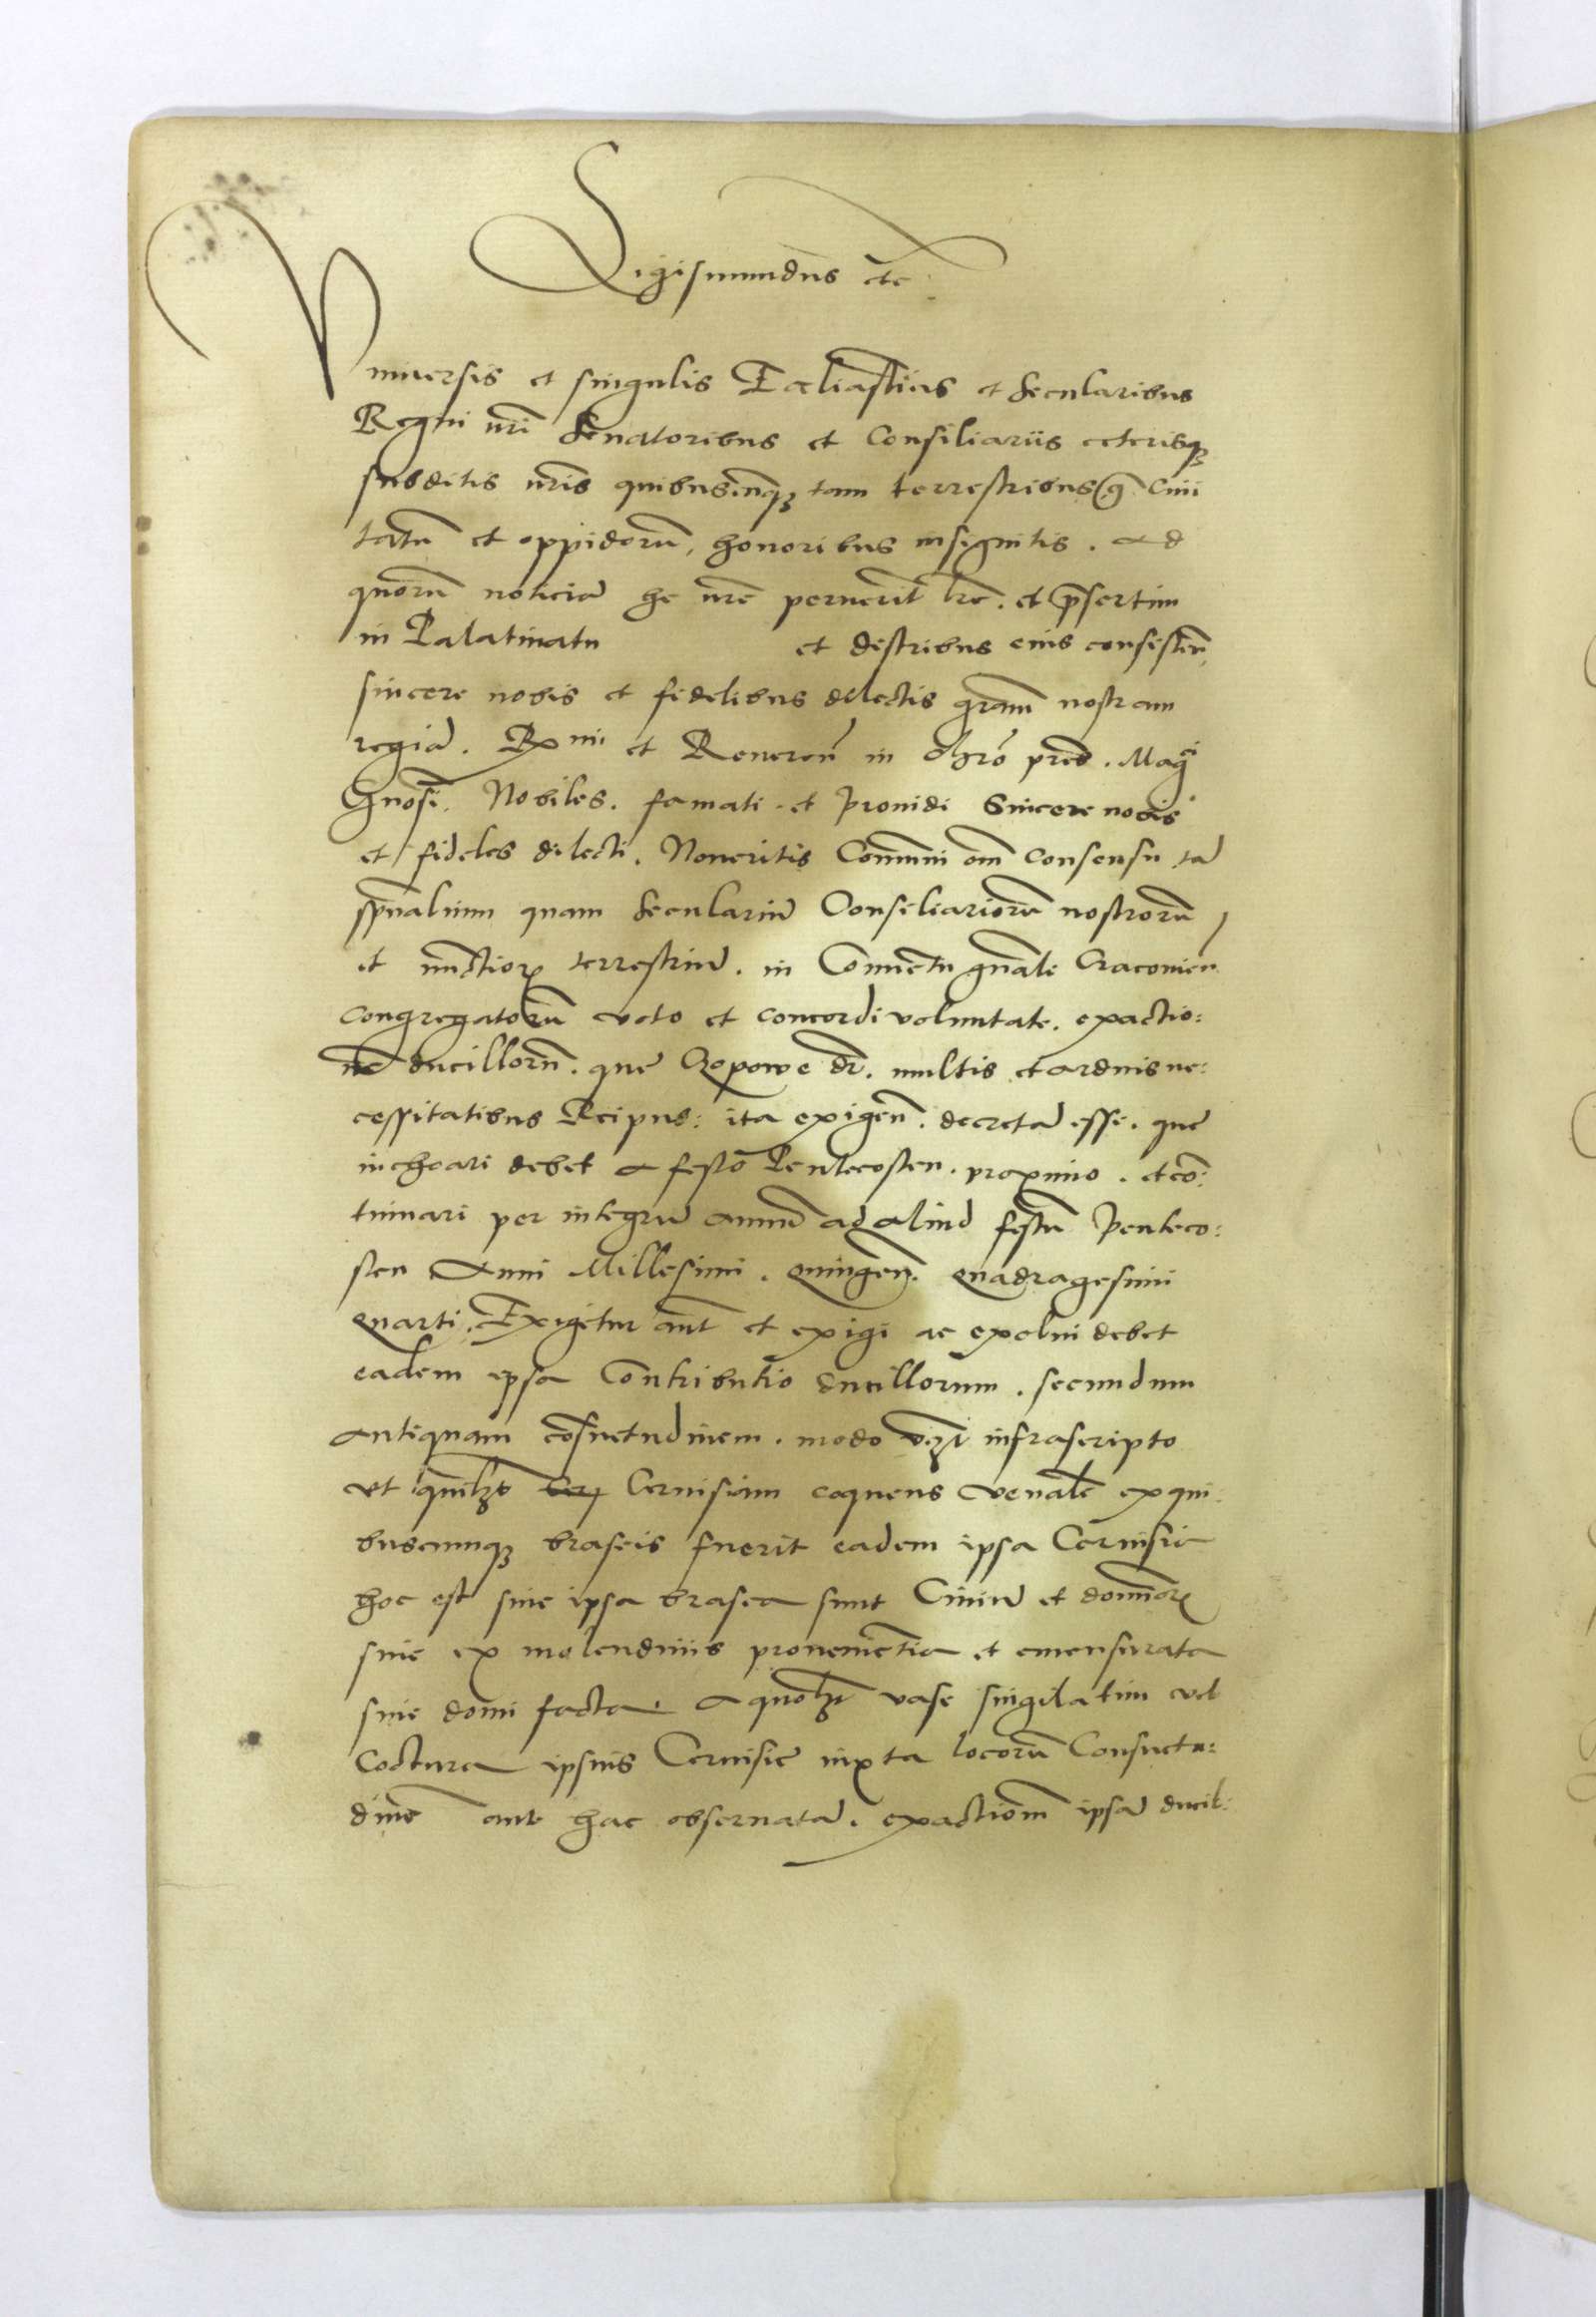 Sigismundus etc
Universis et singulis Eccliasticis et Secularibus
Regni nri Senatoribus et Consiliariis ceterisq
subditis nris quibuscunq tam terrestribus q Civi
tatu et oppidoru, honoribus insignitis. ad
quoru noticia he nre pervenerit lre. et presertim
in Palatinatu et districtibus eius consisten,
sincere nobis et fidelibus dilectis gram nostram
regia. Rmi et Reveren in Chro pres. Magci
Gnosi. Nobiles. famati et Providi Sincere nobis
et fideles dilecti. Noveritis Communi om consensu ta
spualium quam Seculariu Consiliarioru nostroru
et nuctior terrestriu. in Conventu gnale Cracovien
congregatoru voto et concordi voluntate. exactio:
ne ducilloru. que Czopowe dr. multis et arduis ne:
cessitatibus Reipub: ita exigen. decreta esse. que
inchoari debet a festo Pentecosten. proximo. et co:
tinuari per integru annu ad aliud festu Penteco:
sten Anni Millesimi. quingen. quadragesimi
quarti. Exigetur aut et exigi ac exolvi debet
eadem ipsa Contributio ducillorum. secundum
antiquam cosuetudinem. modo vizt infrascripto
ut quilzb Cer Cervisiam coquens venale ex qui:
buscumq braseis fuerit eadem ipsa Cervisia
hoc est sive ipsa brasea sunt Civiu et domior
sive ex molendinis provenientia et emensurata
sive domi facta. a quolzt vase singilatim vel
Coctura ipsius Cervisie iuxta locoru Consuetu:
dine ante hac observata. exactiom ipsa ducil: